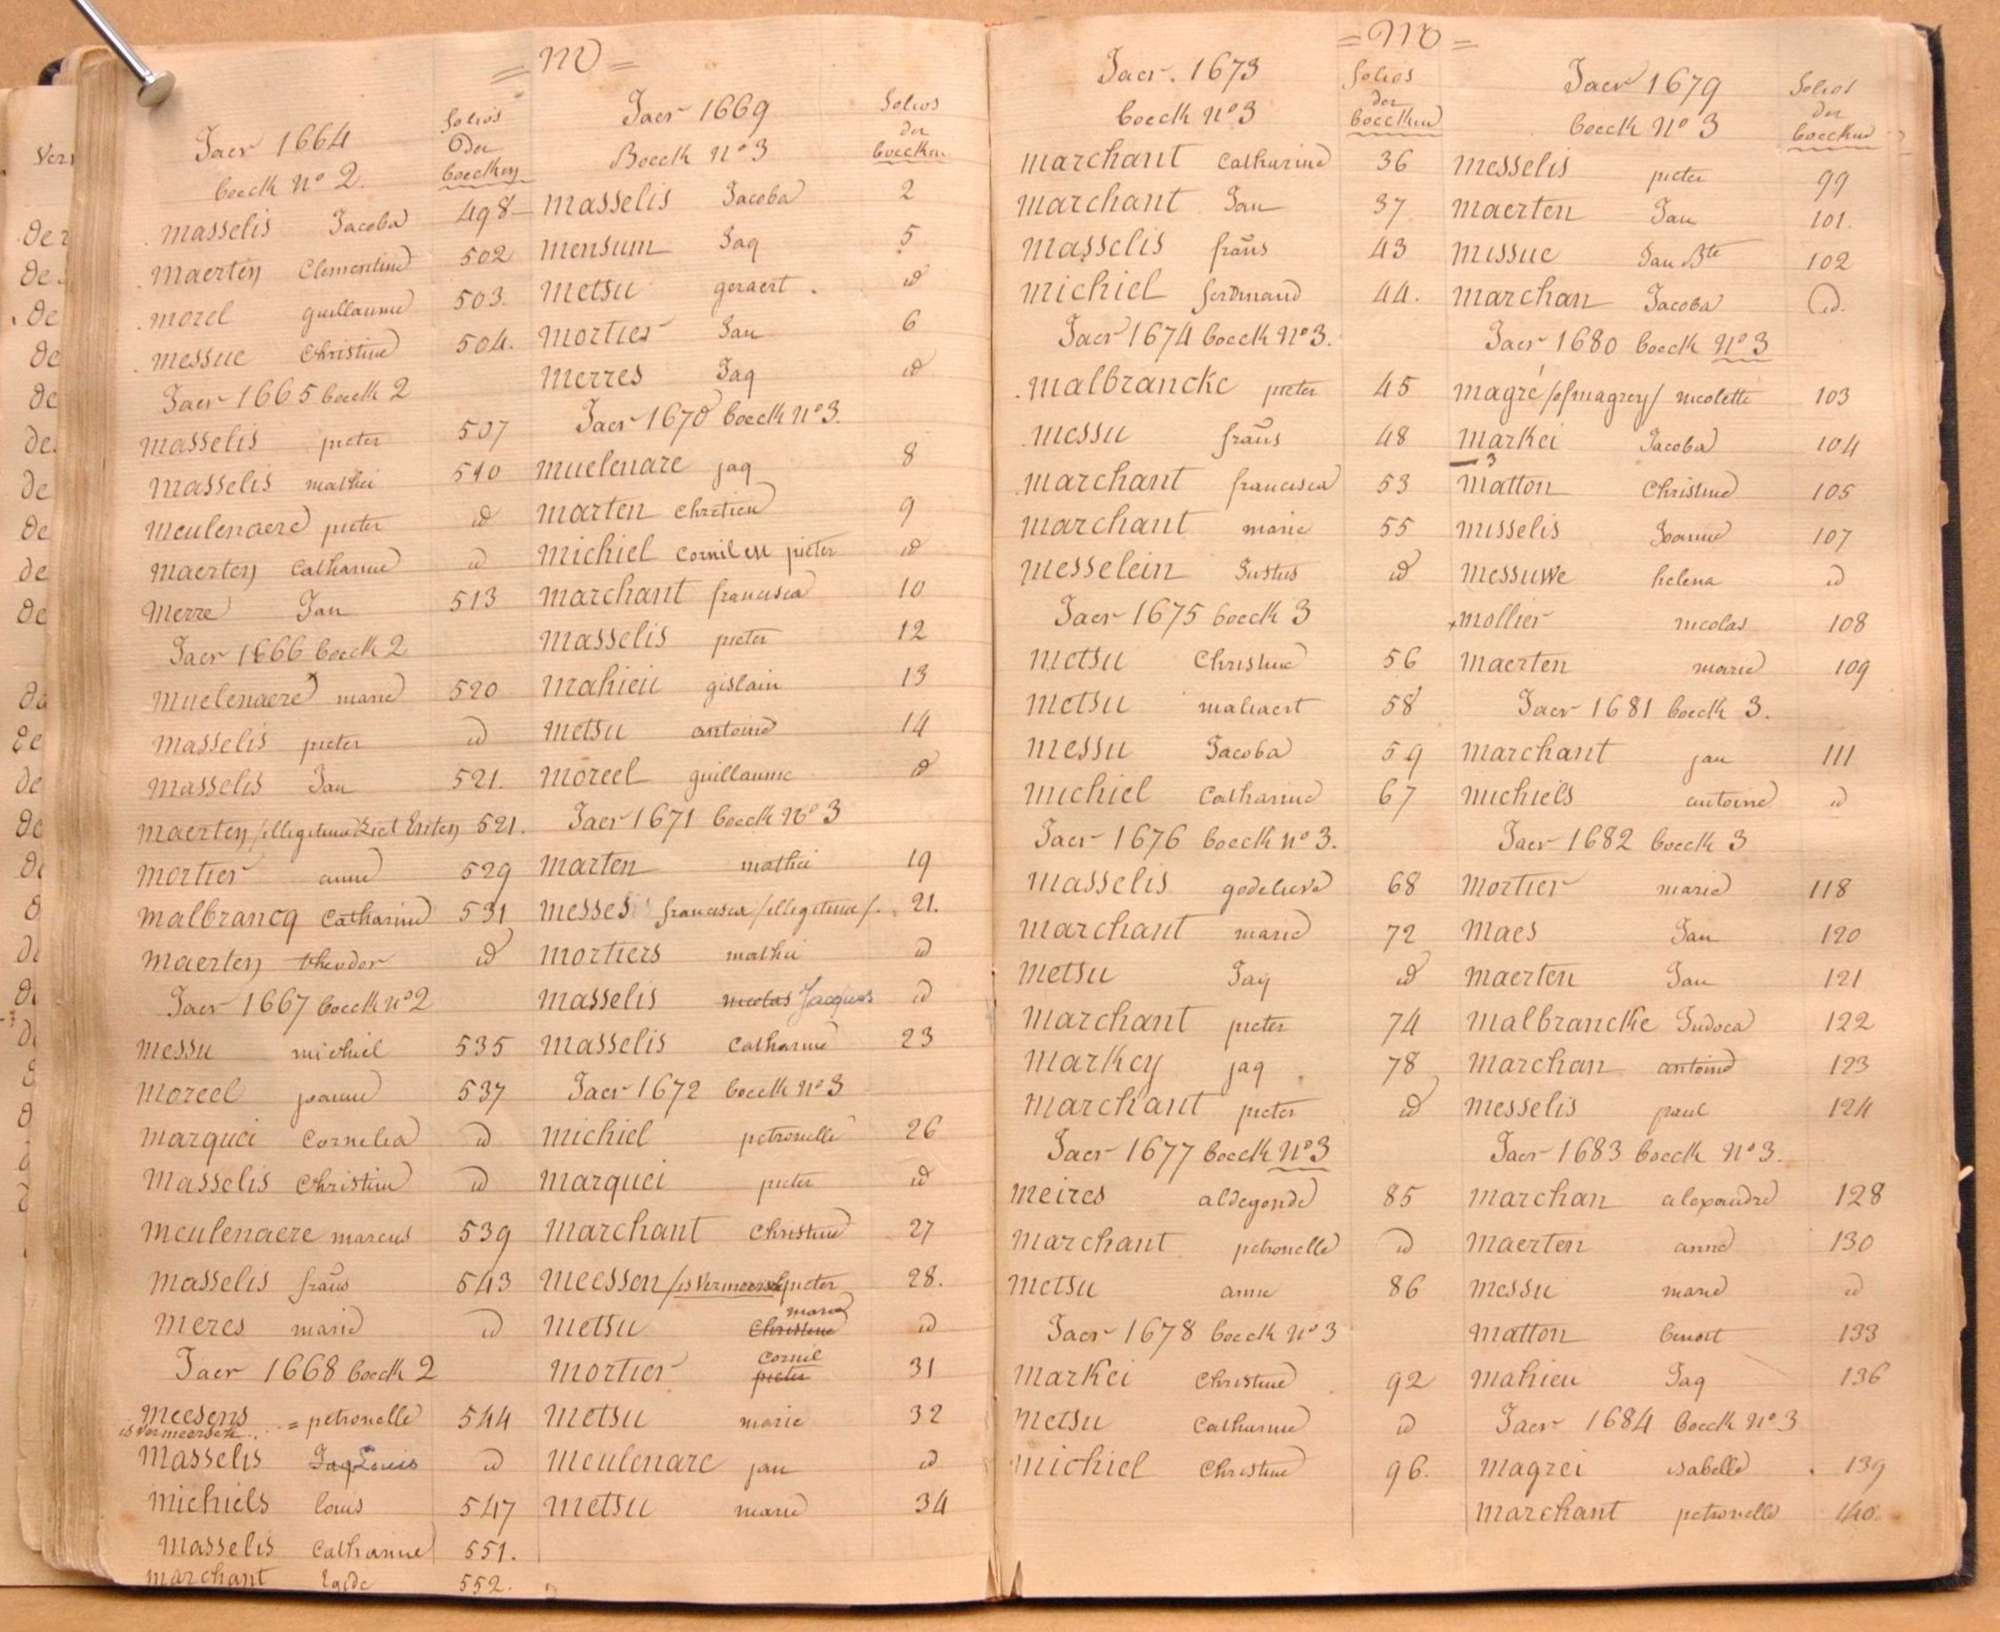 = M =
Jaer 1664
folios
der
boecken
boeck No 2.
masselis Jacoba 498
maerten Clementine 502
morel guillaume 503.
messue Christine 504.
Jaer 1665 boeck 2
masselis pieter 507
masselis mathei 510
meulenaere pieter id
maerten Catharine id
Merre Jan 513
Jaer 1666 boeck 2
muelenaere marie 520
masselis pieter id
masselis Jan 521.
maerten /illegitime/ 521.
mortier anne 529
malbrancq Catharine 531
maerten theodor id
Jaer 1667 boeck no 2
messu michiel 535
moreel joanne 537
marquei Cornelia id
masselis Christine id
meulenaere marcus 539
masselis frans 543
meres marie id
Jaer 1668 boeck 2
meesens = petronelle 544
is Vermeersch
masselis Jaq Louis id
michiels louis 547
masselis Catharine 551.
marchant Egide 552.
Jaer 1669
folios
der
boecken
Boeck No 3
masselis Jacoba 2
mensum Jaq 5
metsu geraert id
mortier Jan 6
merres Jaq id
Jaer 1670 boeck No 3.
muelenare jaq 8
marten chretien 9
michiel cornil en pieter id
marchant francisca 10
masselis pieter 12
mahieu gislain 13
metsu antoine 14
moreel guillaume id
Jaer 1671 boeck No 3
marten mathei 19
messes francisca /illegitime/. 21.
mortiers mathei id
masselis nicolas Jacques id
masselis Catharine 23
Jaer 1672 boeck No 3
michiel petronelle 26
marquei pieter id
marchant Christine 27
meessen /is Vermeersch pieter 28.
marie
metsu Christine id
Cornil
mortier pieter 31
metsu marie 32
meulenare jan id
metsu marie 34
= M =
Jaer. 1673
folios
der
boecken
boeck No 3
marchant Catharine 36
marchant Jan 37
masselis frans 43
michiel ferdinand 44.
Jaer 1674 boeck No 3.
malbrancke pieter 45
messu frans 48
marchant francisca 53
marchant marie 55
messelein Justus id
Jaer 1675 boeck 3
metsu Christine 56
metsu maliaert 58
messu Jacoba 59
michiel Catharine 67
Jaer 1676 boeck no 3.
masselis godelieve 68
marchant marie 72
metsu Jaq id
marchant pieter 74
markey jaq 78
marchant pieter id
Jaer 1677 boeck No 3
meires aldegonde 85
marchant petronelle id
metsu anne 86
Jaer 1678 boeck No 3
markei Christine 92
metsu Catharine id
michiel Christine 96.
Jaer 1679
folios
der
boecken
boeck No 3
messelis pieter 99
maerten Jan 101.
missue Jan Bte 102
marchan Jacoba id.
Jaer 1680 boeck No 3
magré /of magrey/ nicolette 103
markei Jacoba 104
matton Christine 105
misselis Joanne 107
messuwe helena id
mollier nicolas 108
maerten marie 109
Jaer 1681 boeck 3.
marchant jan 111
michiels antoine id
Jaer 1682 boeck 3
mortier marie 118
maes Jan 120
maerten Jan 121
malbrancke Judoca 122
marchan antoine 123
messelis paul 124
Jaer 1683 boeck No 3.
marchan alexandre 128
maerten anne 130
messu marie id
matton benoit 133
mahieu Jaq 136
Jaer 1684 boeck No 3
magrei isabelle 139
marchant petronelle 140.